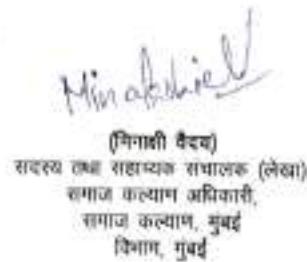 Minakshi V
(मिनाक्षी वैदय)
सदस्य तथा सहाय्यक संचालक (लेखा)
समाज कल्याण अधिकारी,
समाज कल्याण, मुंबई
विभाग, मुंबई